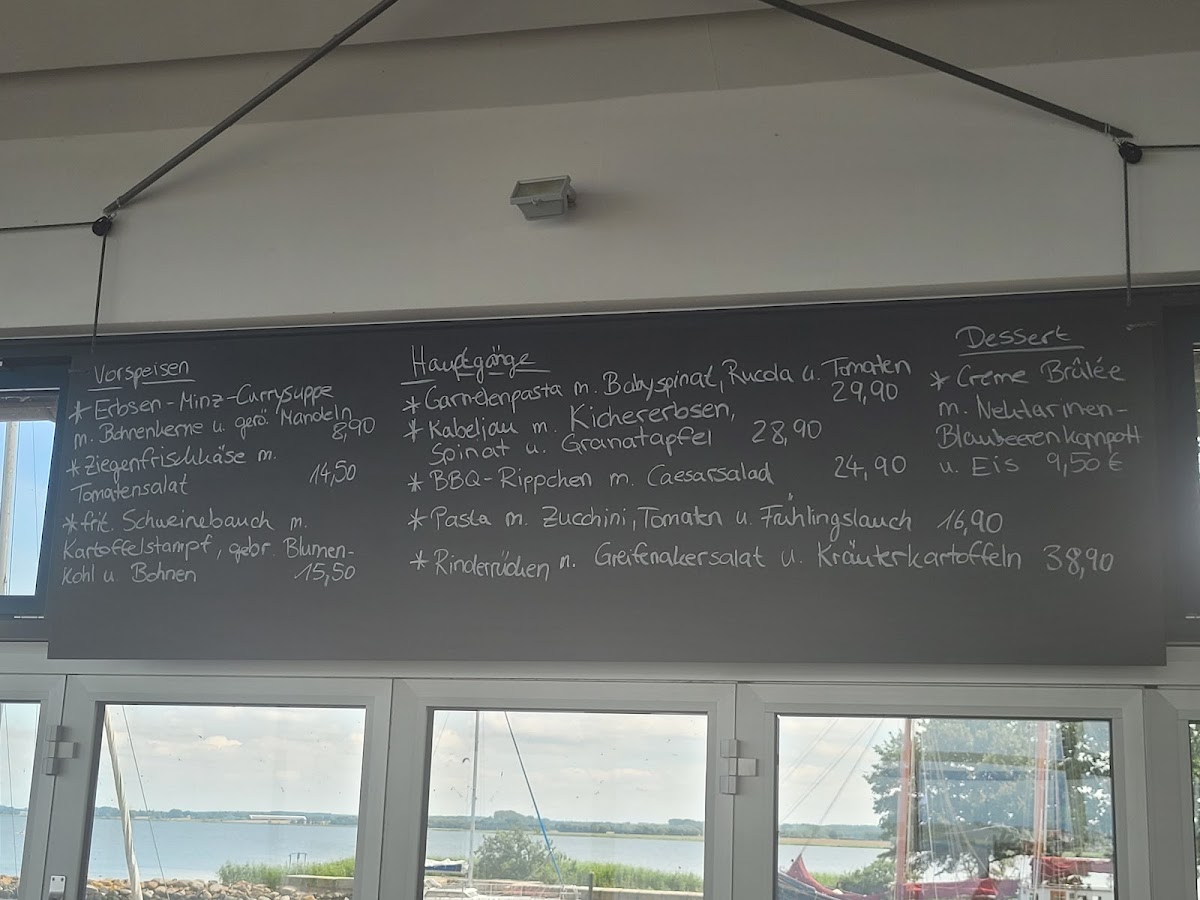 Vorspeisen
* Erbsen-Minz-Currysuppe
m. Bohnenkerne u. gerö. Mandeln
8,90
* Ziegenfrischkäse m.
Tomatensalat 14,50
* frit. Schweinebauch m.
Kartoffelstampf, gebr. Blumen-
kohl u. Bohnen 15,50
Hauptgänge
* Garnelenpasta m. Babyspinat, Rucola u. Tomaten
29,90
* Kabeljau m. Kichererbsen,
Spinat u. Granatapfel 28,90
* BBQ-Rippchen m. Caesarsalad 24,90
* Pasta m. Zucchini, Tomaten u. Frühlingslauch 16,90
* Rinderrücken m. Greifenakersalat u. Kräuterkartoffeln 38,90
Dessert
* Crème Brûlée
m. Nektarinen-
Blaubeerenkompott
u. Eis 9,50 €